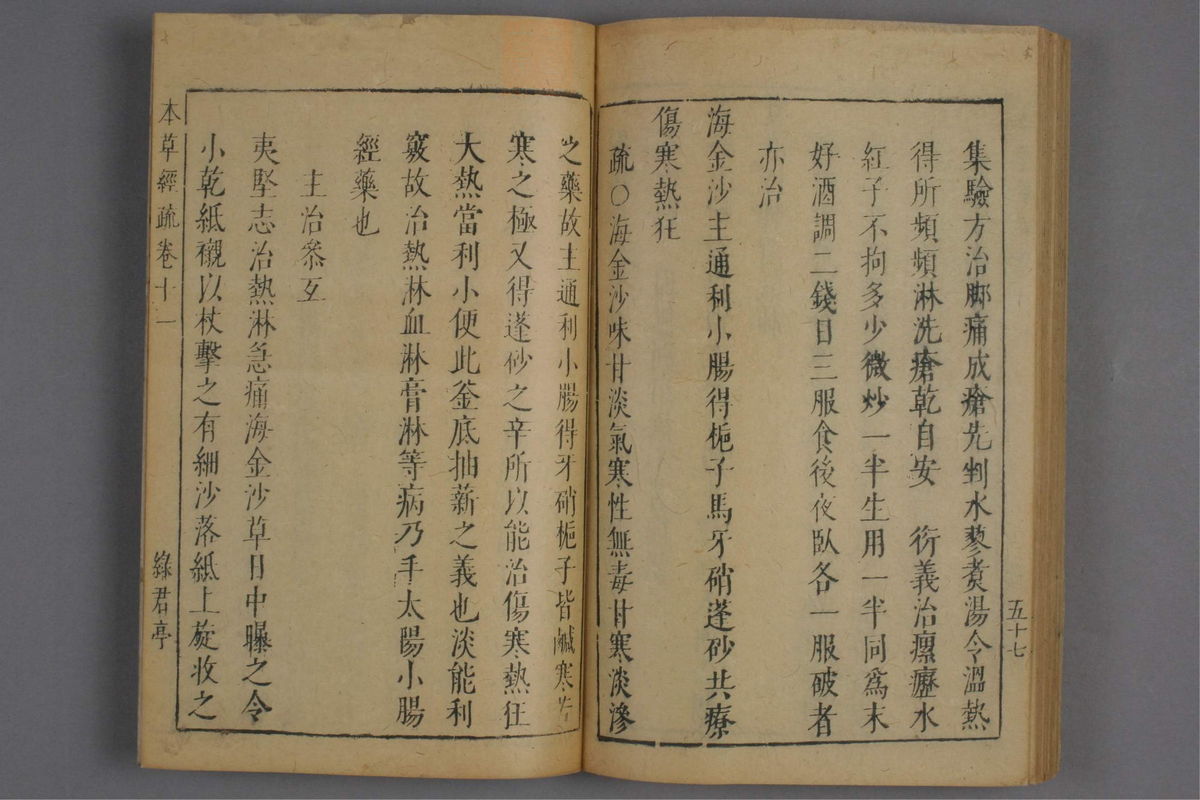 集驗方治脚痛成瘡先剉水蓼煑湯令溫熱
得所頻頻淋洗瘡乾自安　衍義治瘰癧水
紅子不拘多少微炒一半生用一半同為末
好酒調二錢日三服食後夜臥各一服破者
亦治
海金沙主通利小腸得梔子馬牙硝蓬砂共療
傷寒熱狂
疏○海金沙味甘淡氣寒性無毒甘寒淡滲
五十七
之藥故主通利小腸得牙硝梔子皆鹹寒苦
寒之極又得蓬砂之辛所以能治傷寒熱狂
大熱當利小便此釜底抽薪之義也淡能利
竅故治熱淋血淋膏淋等病乃手太陽小腸
經藥也
主治叅互
夷堅志治熱淋急痛海金沙草日中曝之令
小乾紙襯以杖擊之有細沙落紙上旋收之
本草經疏卷十一
綠君亭